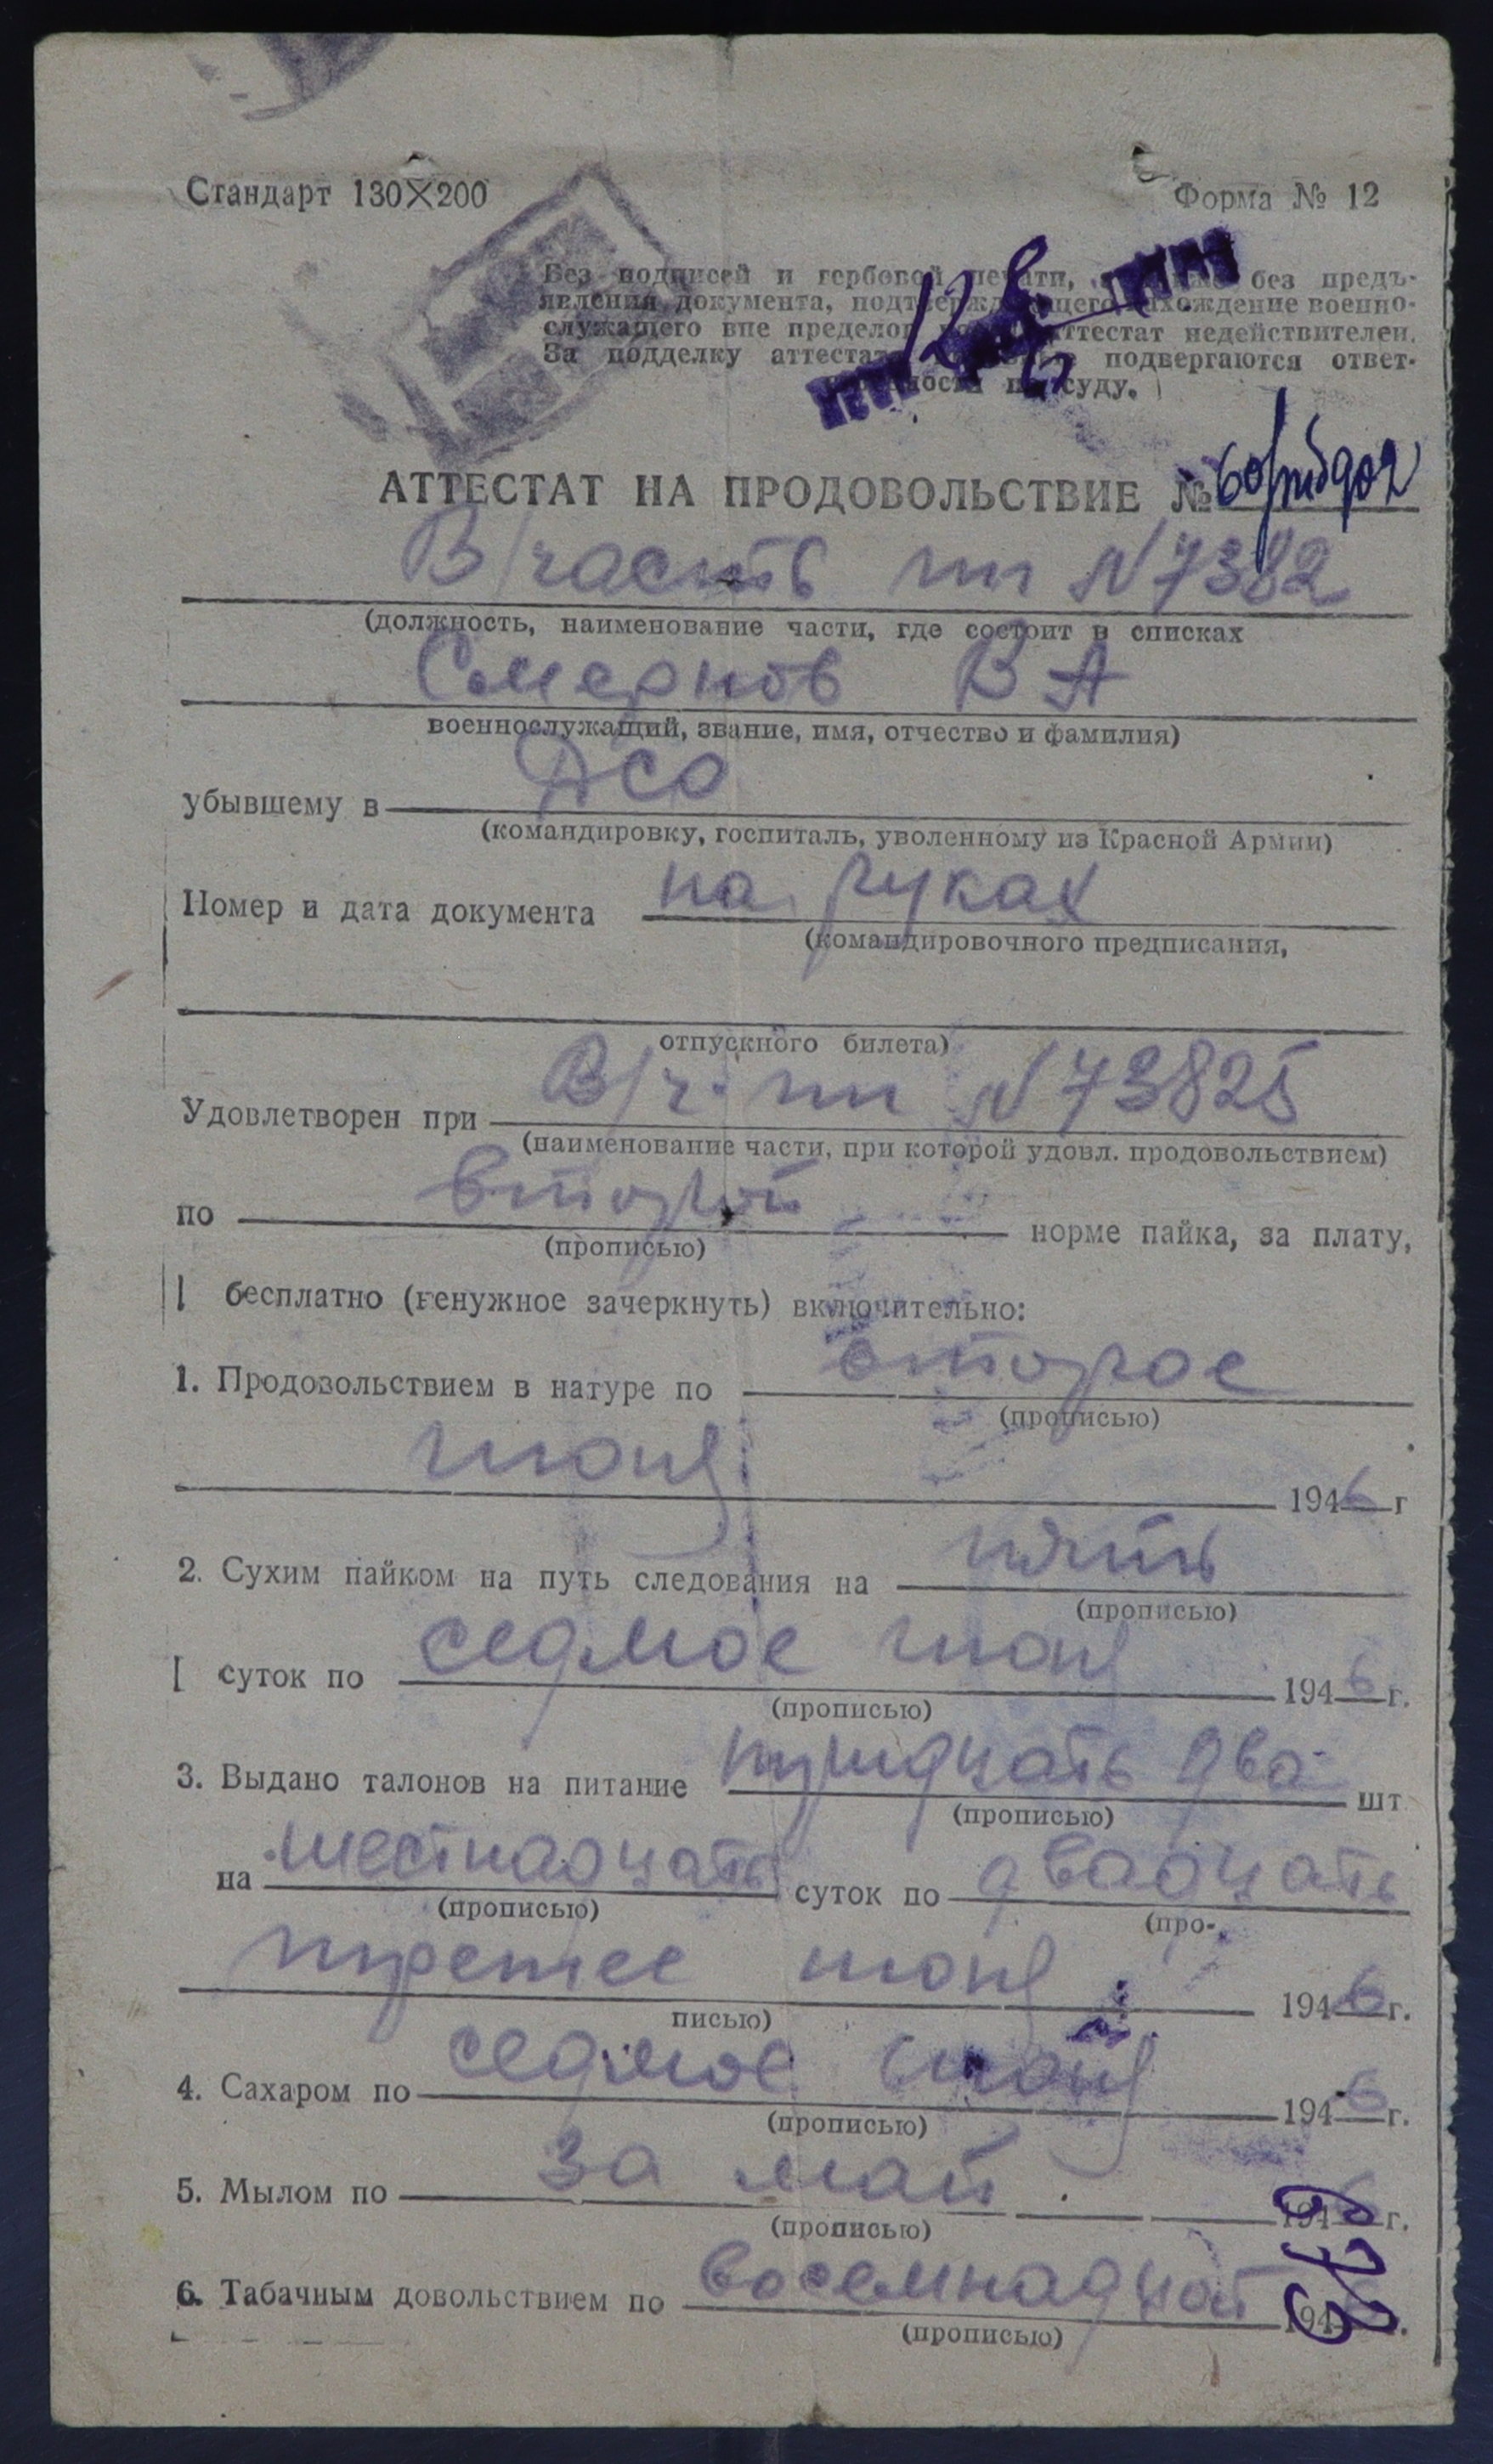 Стандарт 130×200 Форма № 12
Без подписей и гербовой печати, без предъ-
явления документа, подтверждающего нахождение военно-
служащего вне пределов аттестат недействителен.
За подделку аттестата подвергаются ответ-
суду.
АТТЕСТАТ НА ПРОДОВОЛЬСТВИЕ №
В/часть пп N 7382
(должность, наименование части, где состоит в списках
Смернов В А
военнослужащий, звание, имя, отчество и фамилия)
убывшему в ДСО
(командировку, госпиталь, уволенному из Красной Армии)
Номер и дата документа на руках
(командировочного предписания,
отпускного билета)
Удовлетворен при В/ч. пп N 73825
(наименование части, при которой удовл. продовольствием)
по второй норме пайка, за плату,
(прописью)
бесплатно (ненужное зачеркнуть) включительно:
1. Продовольствием в натуре по второе
(прописью)
июня 1946 г
2. Сухим пайком на путь следования на пять
(прописью)
суток по седмое июня 1946 г.
(прописью)
3. Выдано талонов на питание тридцать два шт
(прописью)
на шестнадцать суток по двадцать
(прописью) (про-
третее июня 1946 г.
писью)
4. Сахаром по седмое июня 1946 г.
(прописью)
5. Мылом по за май 1946 г.
(прописью)
6. Табачным довольствием по 194 г.
(прописью)